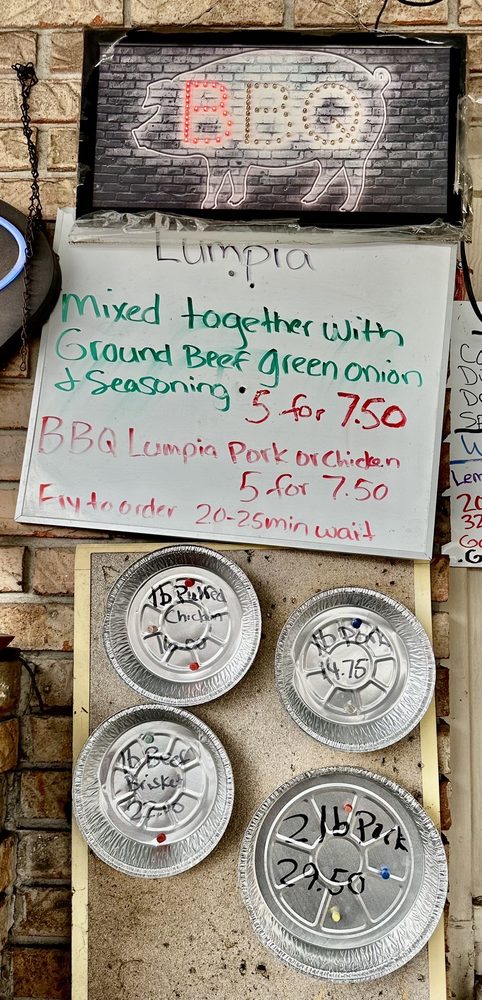 BBQ
Lumpia
Mixed together with
Ground Beef green onion
& Seasoning. 5 for 7.50
BBQ Lumpia Pork or Chicken
5 for 7.50
Fry to order 20-25min wait
1lb Pulled
Chicken
1lb Pork
14.75
1lb Beef
Brisket
2 lb Pork
29.50
Lem